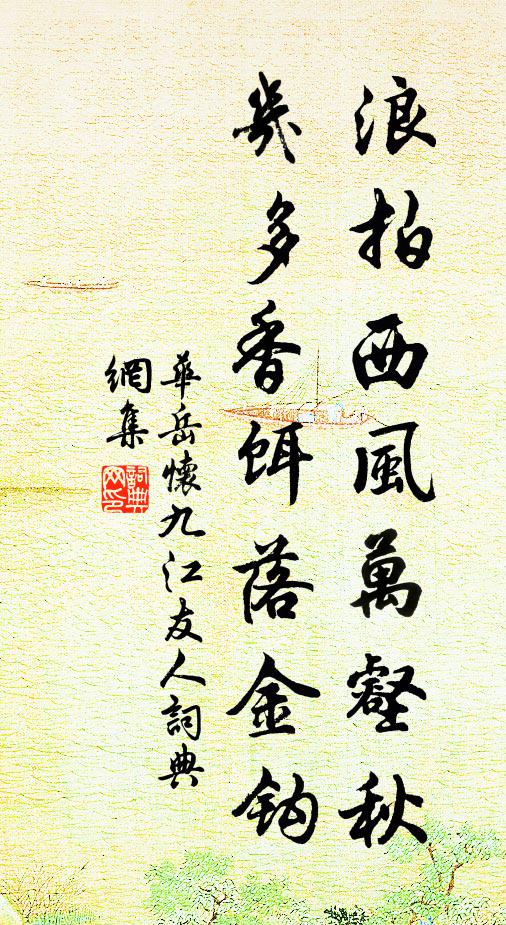 浪拍西風萬壑秋
幾多香餌落金鈎
華岳懷九江友人詞典
網集
詞典網印